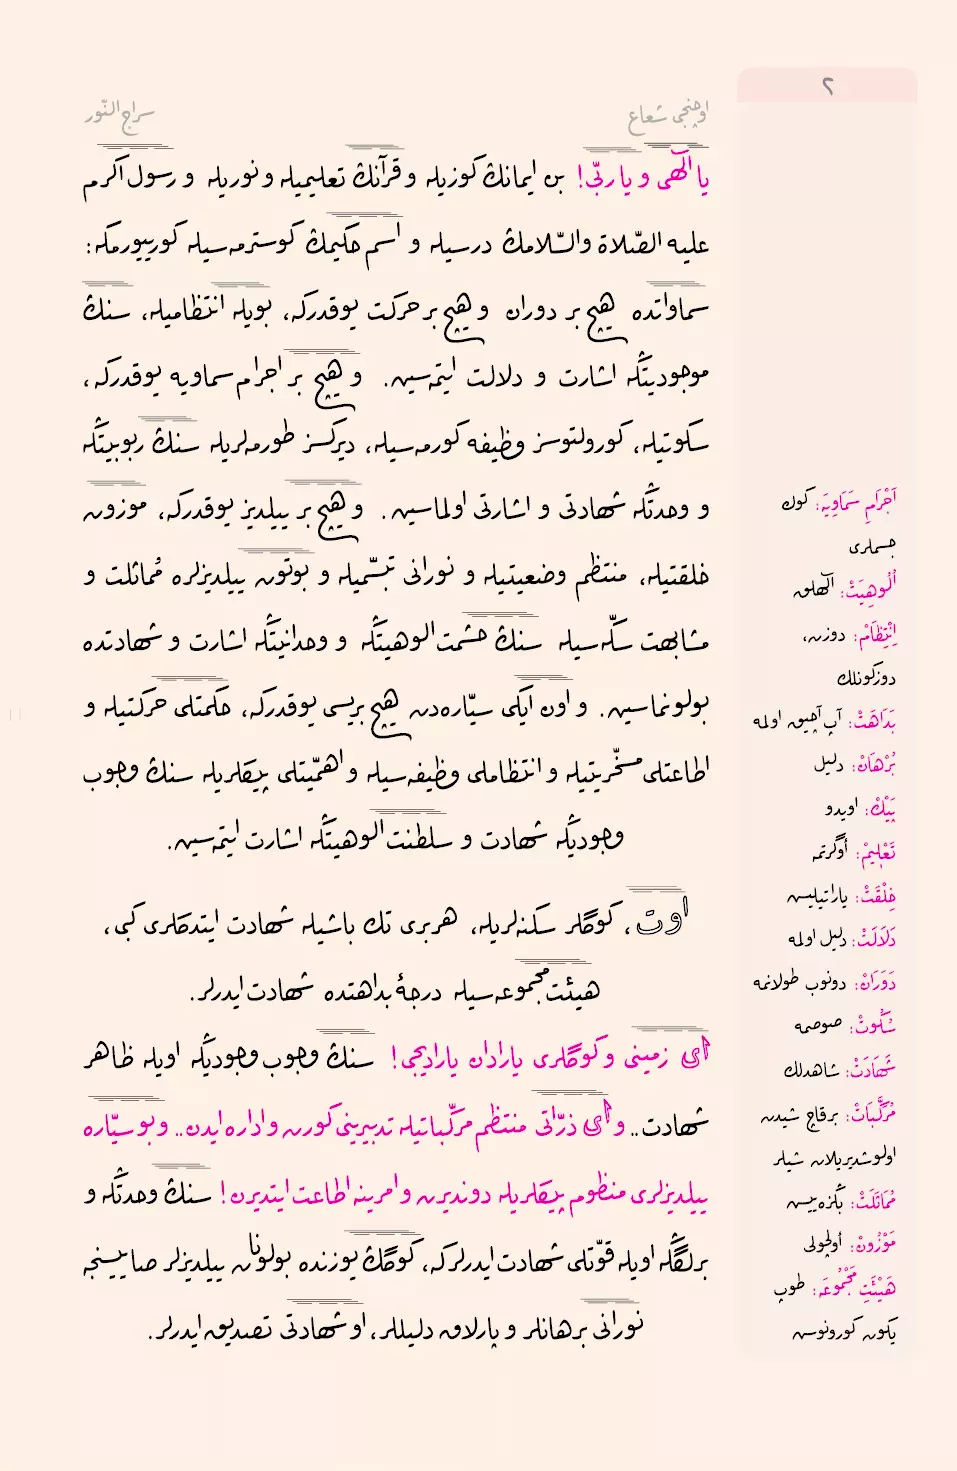 ٢
اوچنجی شعاع
سراج النّور
يا الٓهی و يا ربّی! بن ايمانڭ كوزيله و قرآنڭ تعليميله و نوريله و رسول اكرم
عليه الصّلاة والسّلامڭ درسيله و اسم حكيمڭ كوسترمه‌سيله كورييورمكه:
سماواتده هيچ بر دوران و هيچ بر حركت يوقدركه، بويله انتظاميله، سنڭ
موجوديتڭه اشارت و دلالت ايتمه‌سين. و هيچ بر اجرام سماويه يوقدركه،
سكوتيله، كورولتوسز وظيفه كورمه‌سيله، ديركسز طورمه‌لريله سنڭ ربوبيتڭه
و وحدتڭه شهادتی و اشارتی اولماسين. و هيچ بر ييلديز يوقدركه، موزون
خلقتيله، منتظم وضعيتيله و نورانی تبسّميله و بوتون ييلديزلره مُماثلت و
مشابهت سكّه‌سيله سنڭ حشمت الوهيتڭه و وحدانيتڭه اشارت و شهادتده
بولونماسين. و اون ايكی سيّاره‌دن هيچ بريسی يوقدركه، حكمتلی حركتيله و
اطاعتلی مسخّريتيله و انتظاملی وظيفه‌سيله و اهمّيتلی پيكلريله سنڭ وجوب
وجوديڭه شهادت و سلطنت الوهيتڭه اشارت ايتمه‌سين.
اوت، كوكلر سكنه‌لريله، هربری تك باشيله شهادت ايتدكلری كبی،
هيئت مجموعه‌سيله درجۀ بداهتده شهادت ايدرلر.
ای زمينی و كوكلری يارادان ياراديجی! سنڭ وجوب وجوديڭه اويله ظاهر
شهادت.. و ای ذرّاتی منتظم مركّباتيله تدبيرينی كورن و اداره ايدن.. و بو سيّاره
ييلديزلری منظوم پيكلريله دونديرن و امرينه اطاعت ايتديرن! سنڭ وحدتڭه و
برلگڭه اويله قوّتلی شهادت ايدرلركه، كوكڭ يوزنده بولونان ييلديزلر صاييسنجه
نورانی برهانلر و پارلاق دليللر، او شهادتی تصديق ايدرلر.
اَجْرَامِ سَمَاوِيَه: كوك
جسملری
اُلُوهِيَتْ: الٓهلق
اِنْتِظَامْ: دوزن،
دوزكونلك
بَدَاهَتْ: آپ آچيق اولمه
بُرْهَانْ: دليل
پَيْكْ: اويدو
تَعْلِيمْ: أوگرتمه
خِلْقَتْ: ياراتيليس
دَلَالَتْ: دليل اولمه
دَوَرَانْ: دونوب طولانمه
سُكُوتْ: صوصمه
شَهَادَتْ: شاهدلك
مُرَكَّبَاتْ: برقاچ شيدن
اولوشديريلان شيلر
مُمَاثَلَتْ: بڭزه‌ييس
مَوْزُونْ: أولچولی
هَيْئَتِ مَجْمُوعَه: طوپ
يكون كورونوس